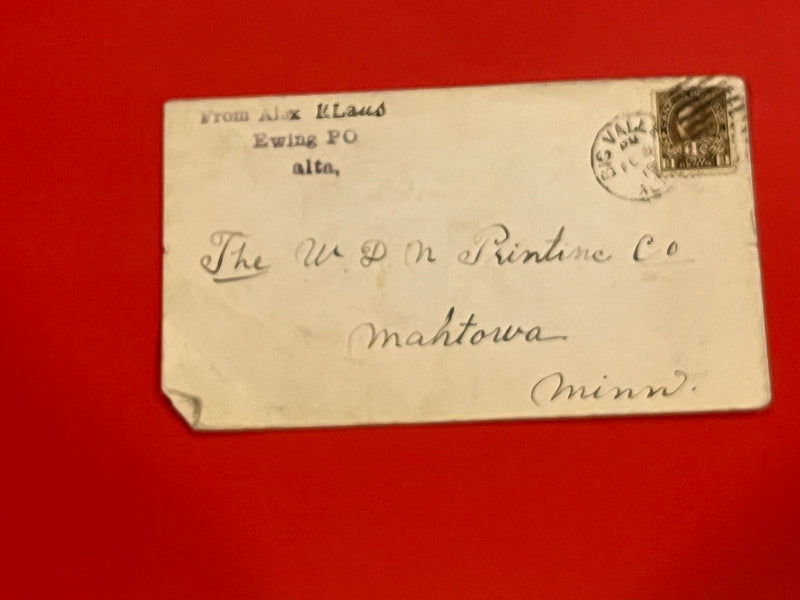 From Alex KLaus
Ewing PO
alta,
BIG VALLEY
PM
FE
19
The W D N Printinc Co
Mahtowa
Minn.